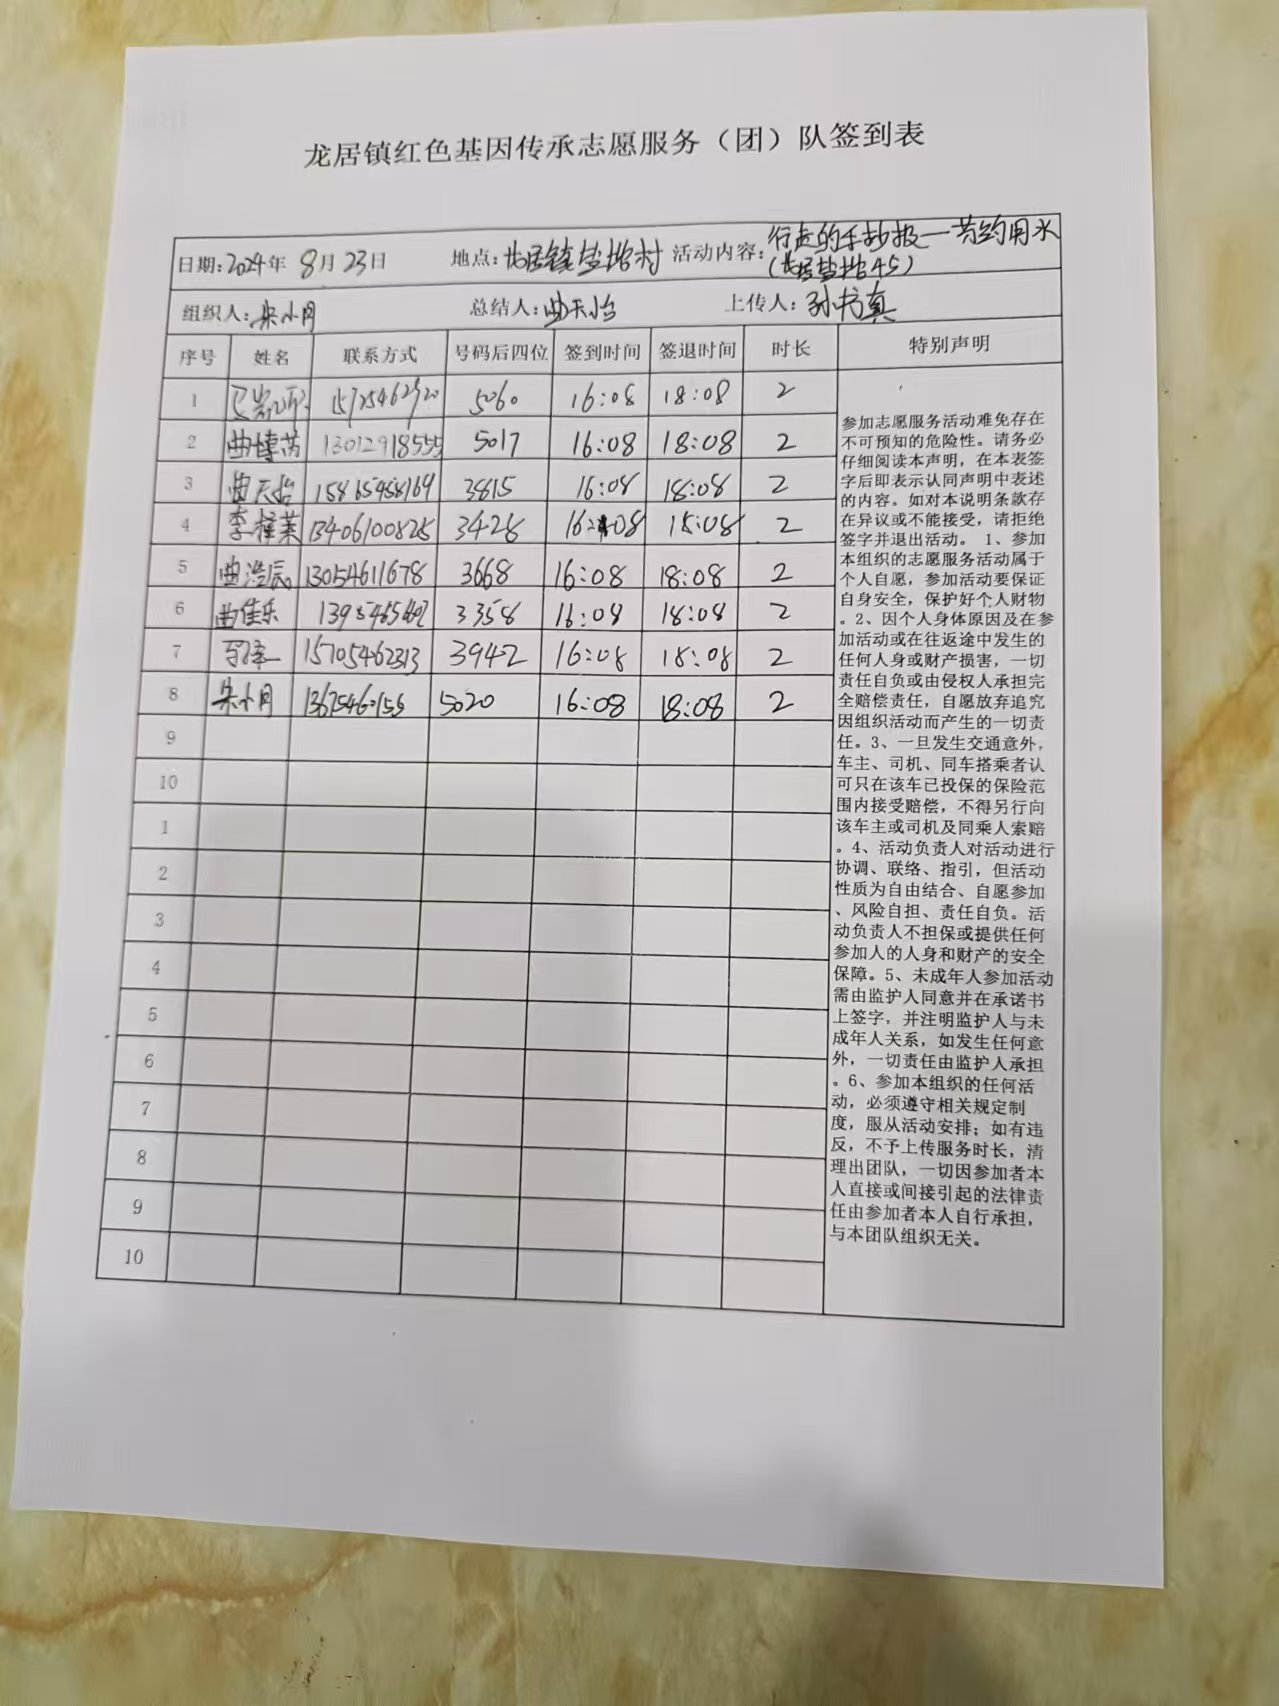 龙居镇红色基因传承志愿服务（团）队签到表
日期:2024年 8月23日 地点:龙居镇盐垛村 活动内容:行走的手抄报—节约用水
(龙居盐垛45)
组织人:朱小月 总结人:曲天怡 上传人:孙书真
序号 姓名 联系方式 号码后四位 签到时间 签退时间 时长 特别声明
1 5060 16:08 18:08 2
2 曲博芮 13012918555 5017 16:08 18:08 2
3 曲天怡 15865458169 3815 16:08 18:08 2
4 李 13406100825 3428 16:08 18:08 2
5 曲浩辰 13054611678 3668 16:08 18:08 2
6 曲佳乐 3358 16:08 18:08 2
7 15705462313 3942 16:08 18:08 2
8 朱小月 5020 16:08 18:08 2
9
10
1
2
3
4
5
6
7
8
9
10
参加志愿服务活动难免存在
不可预知的危险性。请务必
仔细阅读本声明，在本表签
字后即表示认同声明中表述
的内容。如对本说明条款存
在异议或不能接受，请拒绝
签字并退出活动。 1、参加
本组织的志愿服务活动属于
个人自愿，参加活动要保证
自身安全，保护好个人财物
。2、因个人身体原因及在参
加活动或在往返途中发生的
任何人身或财产损害，一切
责任自负或由侵权人承担完
全赔偿责任，自愿放弃追究
因组织活动而产生的一切责
任。3、一旦发生交通意外，
车主、司机、同车搭乘者认
可只在该车已投保的保险范
围内接受赔偿，不得另行向
该车主或司机及同乘人索赔
。4、活动负责人对活动进行
协调、联络、指引，但活动
性质为自由结合、自愿参加
、风险自担、责任自负。活
动负责人不担保或提供任何
参加人的人身和财产的安全
保障。5、未成年人参加活动
需由监护人同意并在承诺书
上签字，并注明监护人与未
成年人关系，如发生任何意
外，一切责任由监护人承担
。6、参加本组织的任何活
动，必须遵守相关规定制
度，服从活动安排；如有违
反，不予上传服务时长，清
理出团队，一切因参加者本
人直接或间接引起的法律责
任由参加者本人自行承担，
与本团队组织无关。